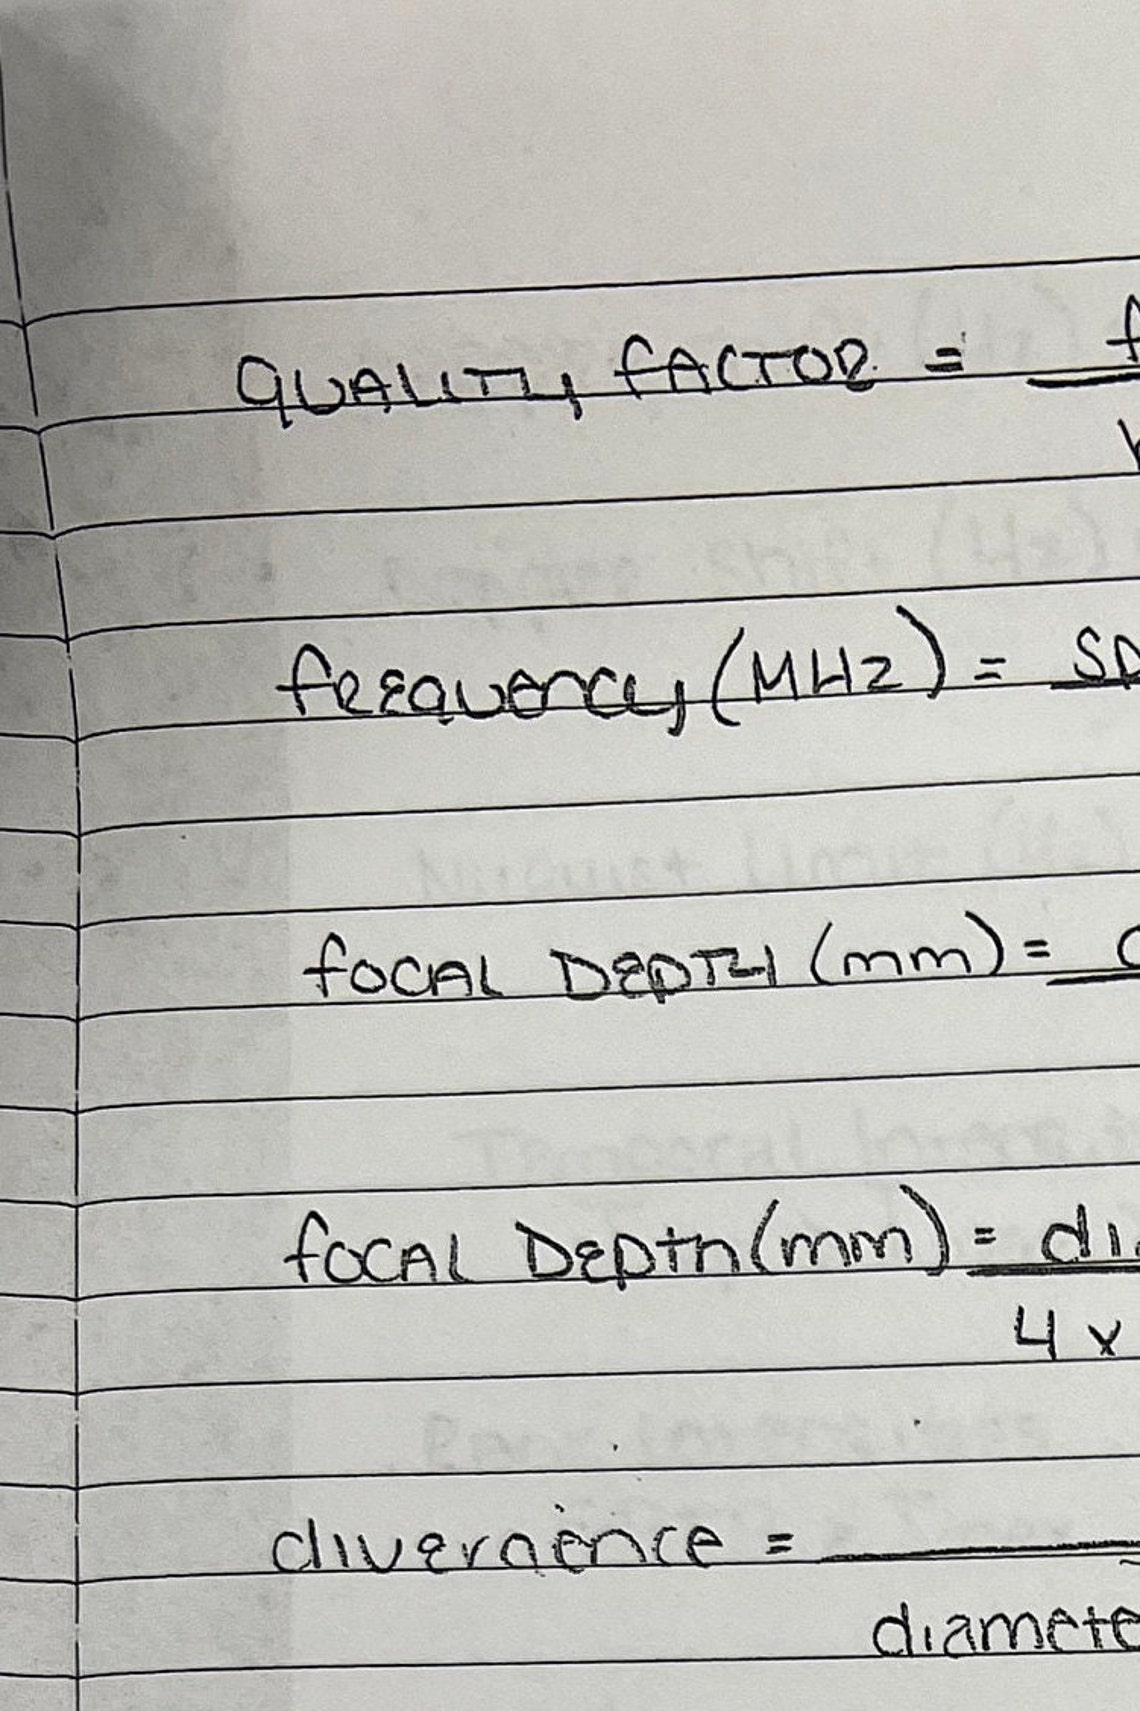 QUALITY FACTOR = f
frequency (MHz) = SP
focal Depth (mm) =
focal Depth (mm) = dia
4 x
divergence =
diamete